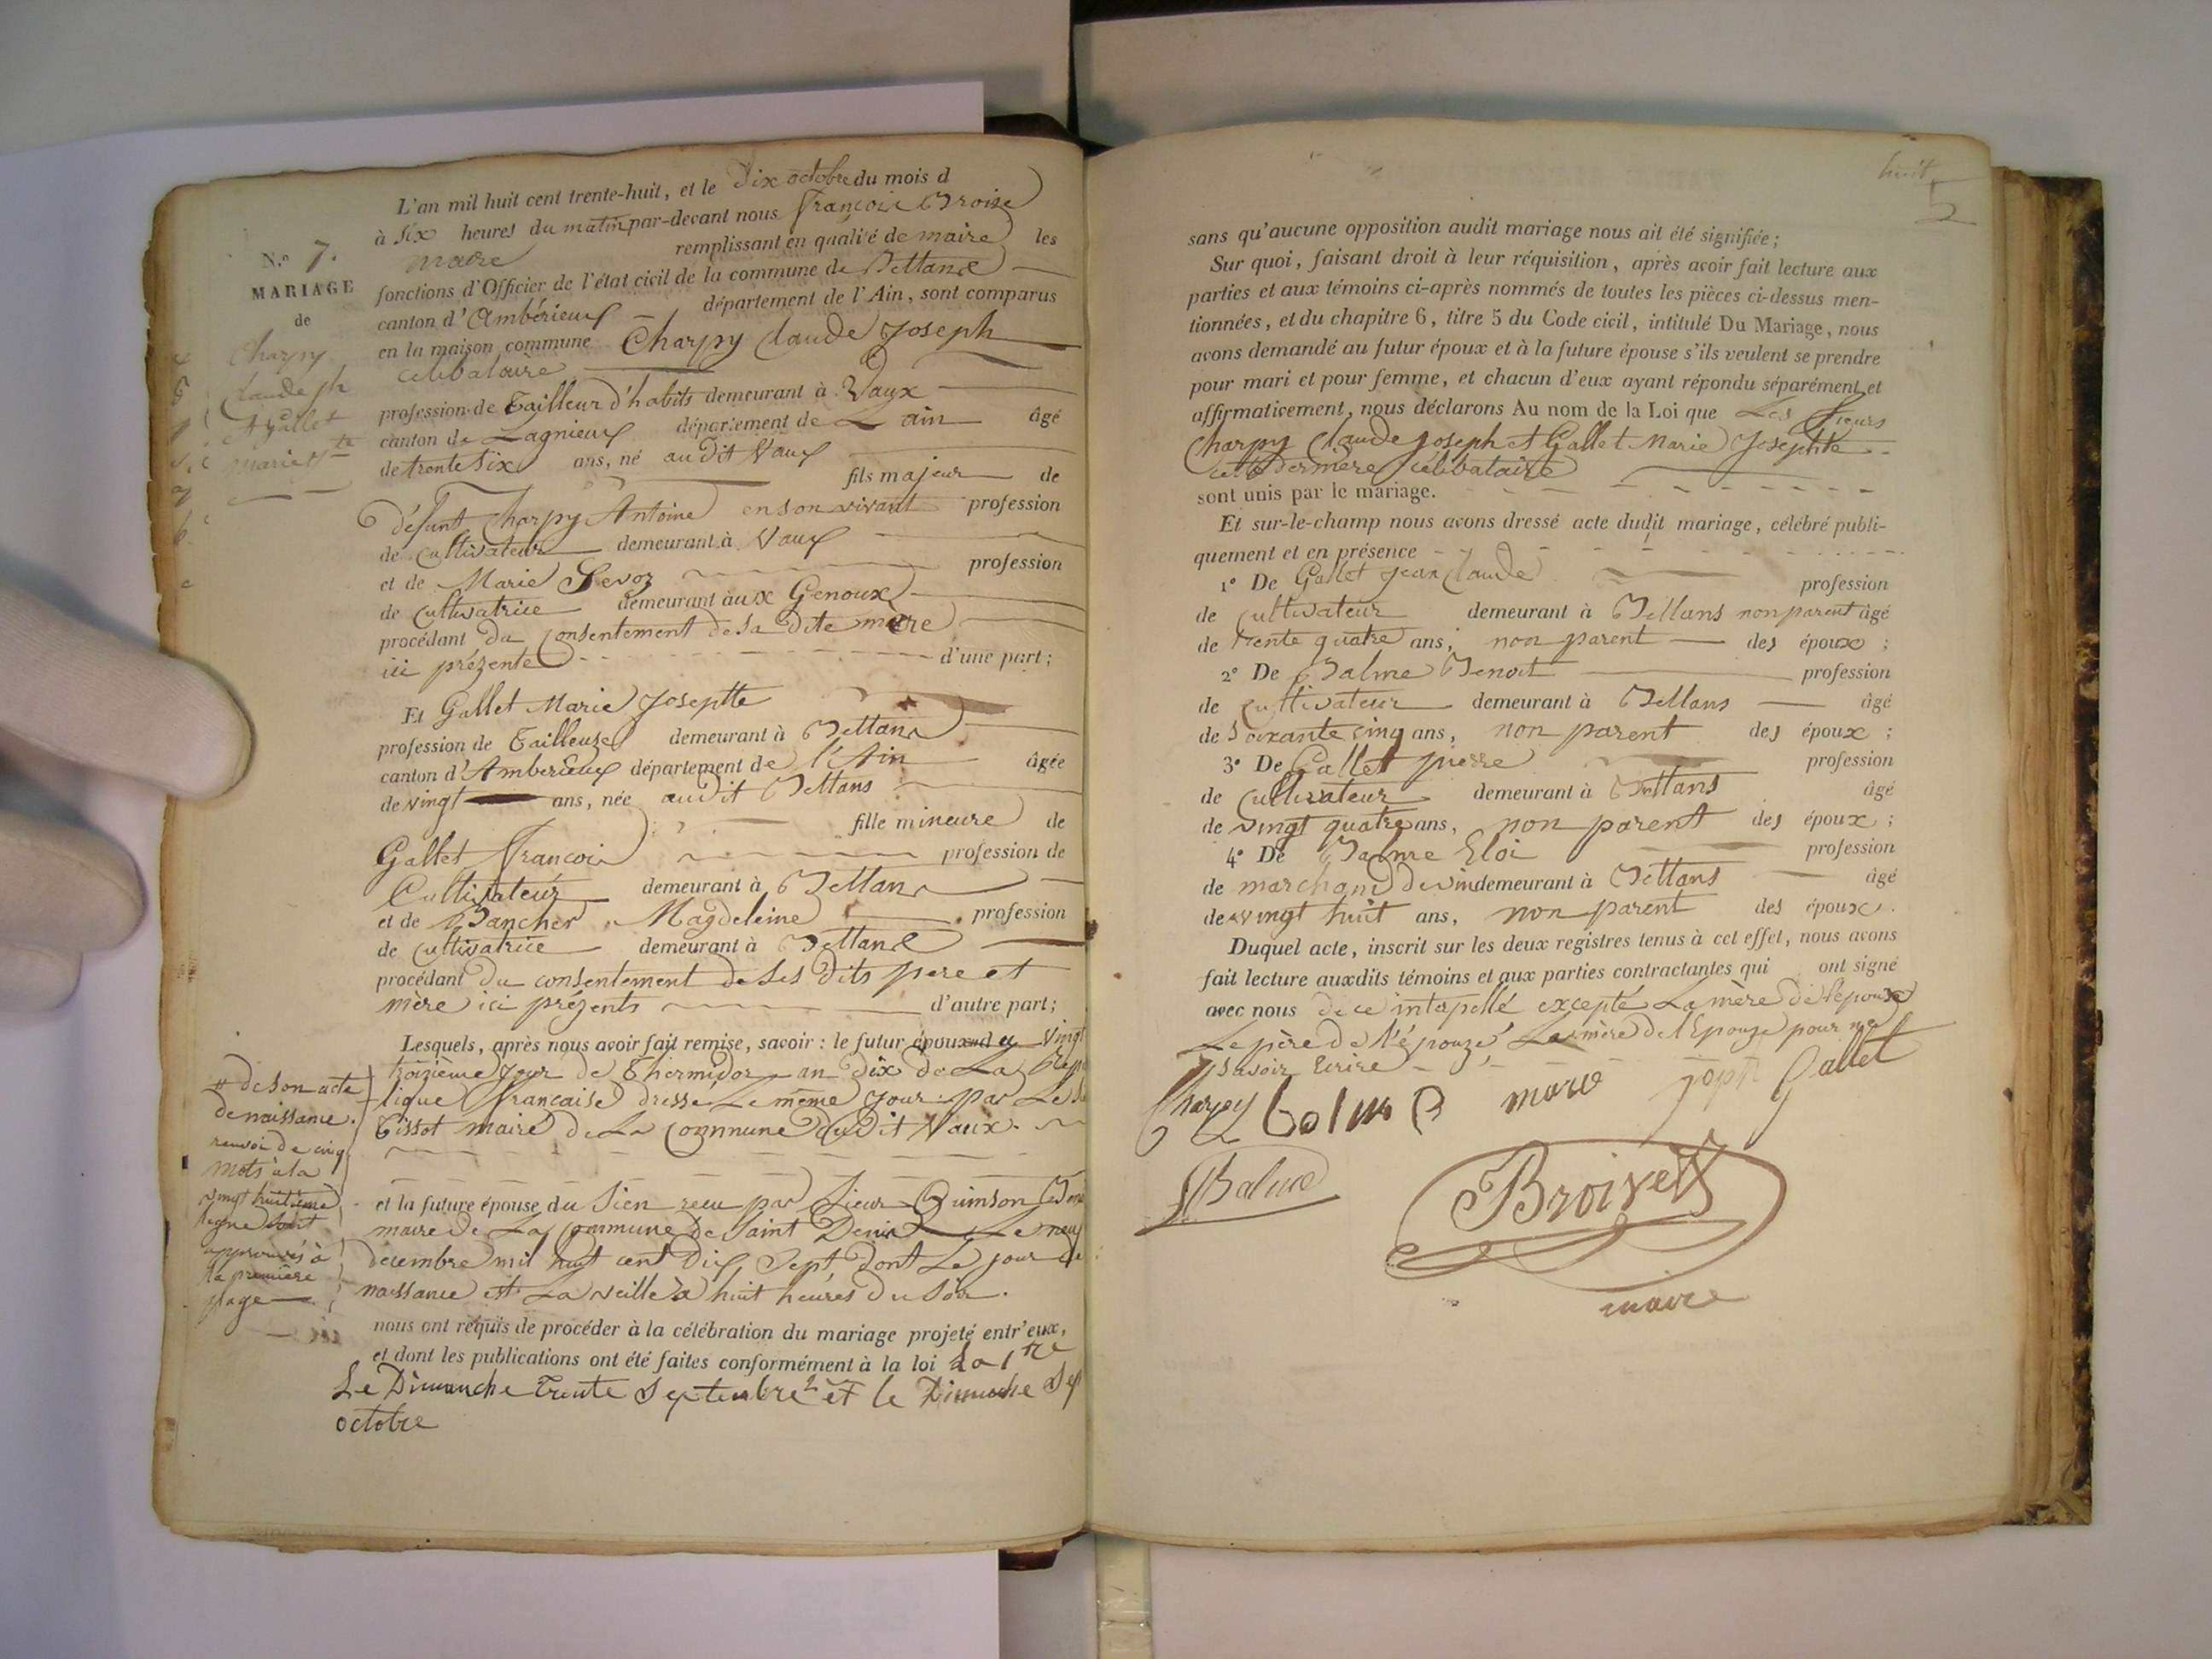 N.º 7.
MARIAGE
de
Charpy
Claude jh
& Gallet
Marie jte
L'an mil huit cent trente-huit, et le Dix octobre du mois d
à six heures du matin par-devant nous françois Broise
maire remplissant en qualité de maire les
fonctions d'Officier de l'état civil de la commune de Bettans
canton d'Ambérieux département de l'Ain, sont comparus
en la maison commune Charpy Claude Joseph
célibataire
profession de Tailleur d'habits demeurant à Vaux
canton de Lagnieux département de L'ain âgé
de trente six ans, né audit Vaux
fils majeur de
défunt Charpy Antoine en son vivant profession
de cultivateur demeurant à Vaux
et de Marie profession
de cultivatrice demeurant aux Genoux
procédant du consentement de sa dite mère
ici prézente d'une part;
Et Gallet Marie Josephte
profession de Tailleuse demeurant à Bettans
canton d'Amberieux département de l'Ain âgée
de vingt ans, née audit Bettans
fille mineure de
Gallet françois profession de
Cultivateur demeurant à Bettans
et de Bancher Magdeleine profession
de cultivatrice demeurant à Bettans
procédant du consentement de ses dits pere et
mère ici prézents d'autre part;
Lesquels, après nous avoir fait remise, savoir : le futur époux vingt
troizième jour de Thermidor an dix de La Repu
lique française dressé Le même jour par Le
Tissot maire de La Commune dudit Vaux.
# de son acte
de naissance.
renvoi de cinq
mots à la
vingt huitième
ligne
approuvés à
la première
page
et la future épouse du sien recu par Sieur Quinson
maire de La Commune de Saint Denis Le neuf
décembre mil huit cent dix sept dont Le jour de
naissance est La veille à huit heures du soir.
nous ont requis de procéder à la célébration du mariage projeté entr'eux,
et dont les publications ont été faites conformément à la loi La 1re
Le Dimanche trente septembre et le Dimanche sep
octobre
huit
5
sans qu'aucune opposition audit mariage nous ait été signifiée;
Sur quoi, faisant droit à leur réquisition, après avoir fait lecture aux
parties et aux témoins ci-après nommés de toutes les pièces ci-dessus men-
tionnées, et du chapitre 6, titre 5 du Code civil, intitulé Du Mariage, nous
avons demandé au futur époux et à la future épouse s'ils veulent se prendre
pour mari et pour femme, et chacun d'eux ayant répondu séparément et
affirmativement, nous déclarons Au nom de la Loi que Les Sieurs
Charpy Claude Joseph et Gallet Marie Josephte
cette dernière célibataire
sont unis par le mariage.
Et sur-le-champ nous avons dressé acte dudit mariage, célébré publi-
quement et en présence
1º De Gallet Jean Claude profession
de cultivateur demeurant à Bettans non parent âgé
de trente quatre ans, non parent des époux ;
2º De Balme Benoit profession
de cultivateur demeurant à Bettans âgé
de soixante cinq ans, non parent des époux ;
3º De Gallet pierre profession
de cultivateur demeurant à Bettans âgé
de vingt quatre ans, non parent des époux ;
4º De Balme Eloi profession
de marchand de vin demeurant à Bettans âgé
de vingt huit ans, non parent des époux.
Duquel acte, inscrit sur les deux registres tenus à cet effet, nous avons
fait lecture auxdits témoins et aux parties contractantes qui ont signé
avec nous de ce intapellé excepté La mère de l'époux
Le père de l'épouze La mère de l'Epouze pour ne
savoir Ecrire
Charpy balme B marie joph Gallet
Balme
Broise
maire